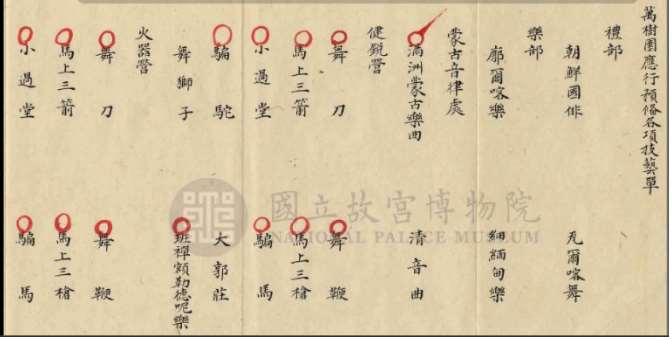 萬樹園應行預備各項技藝單
禮部
朝鮮國俳 瓦爾喀舞
樂部
廓爾喀樂 細緬甸樂
蒙古音律處
滿洲蒙古樂曲 清音曲
健銳營
舞刀 舞鞭
馬上三箭 馬上三槍
小過堂 騙馬
騙駝 大郭莊
舞獅子 班禪額勒德呢樂
火器營
舞刀 舞鞭
馬上三箭 馬上三槍
小過堂 騙馬
國立故宮博物院
NATIONAL PALACE MUSEUM